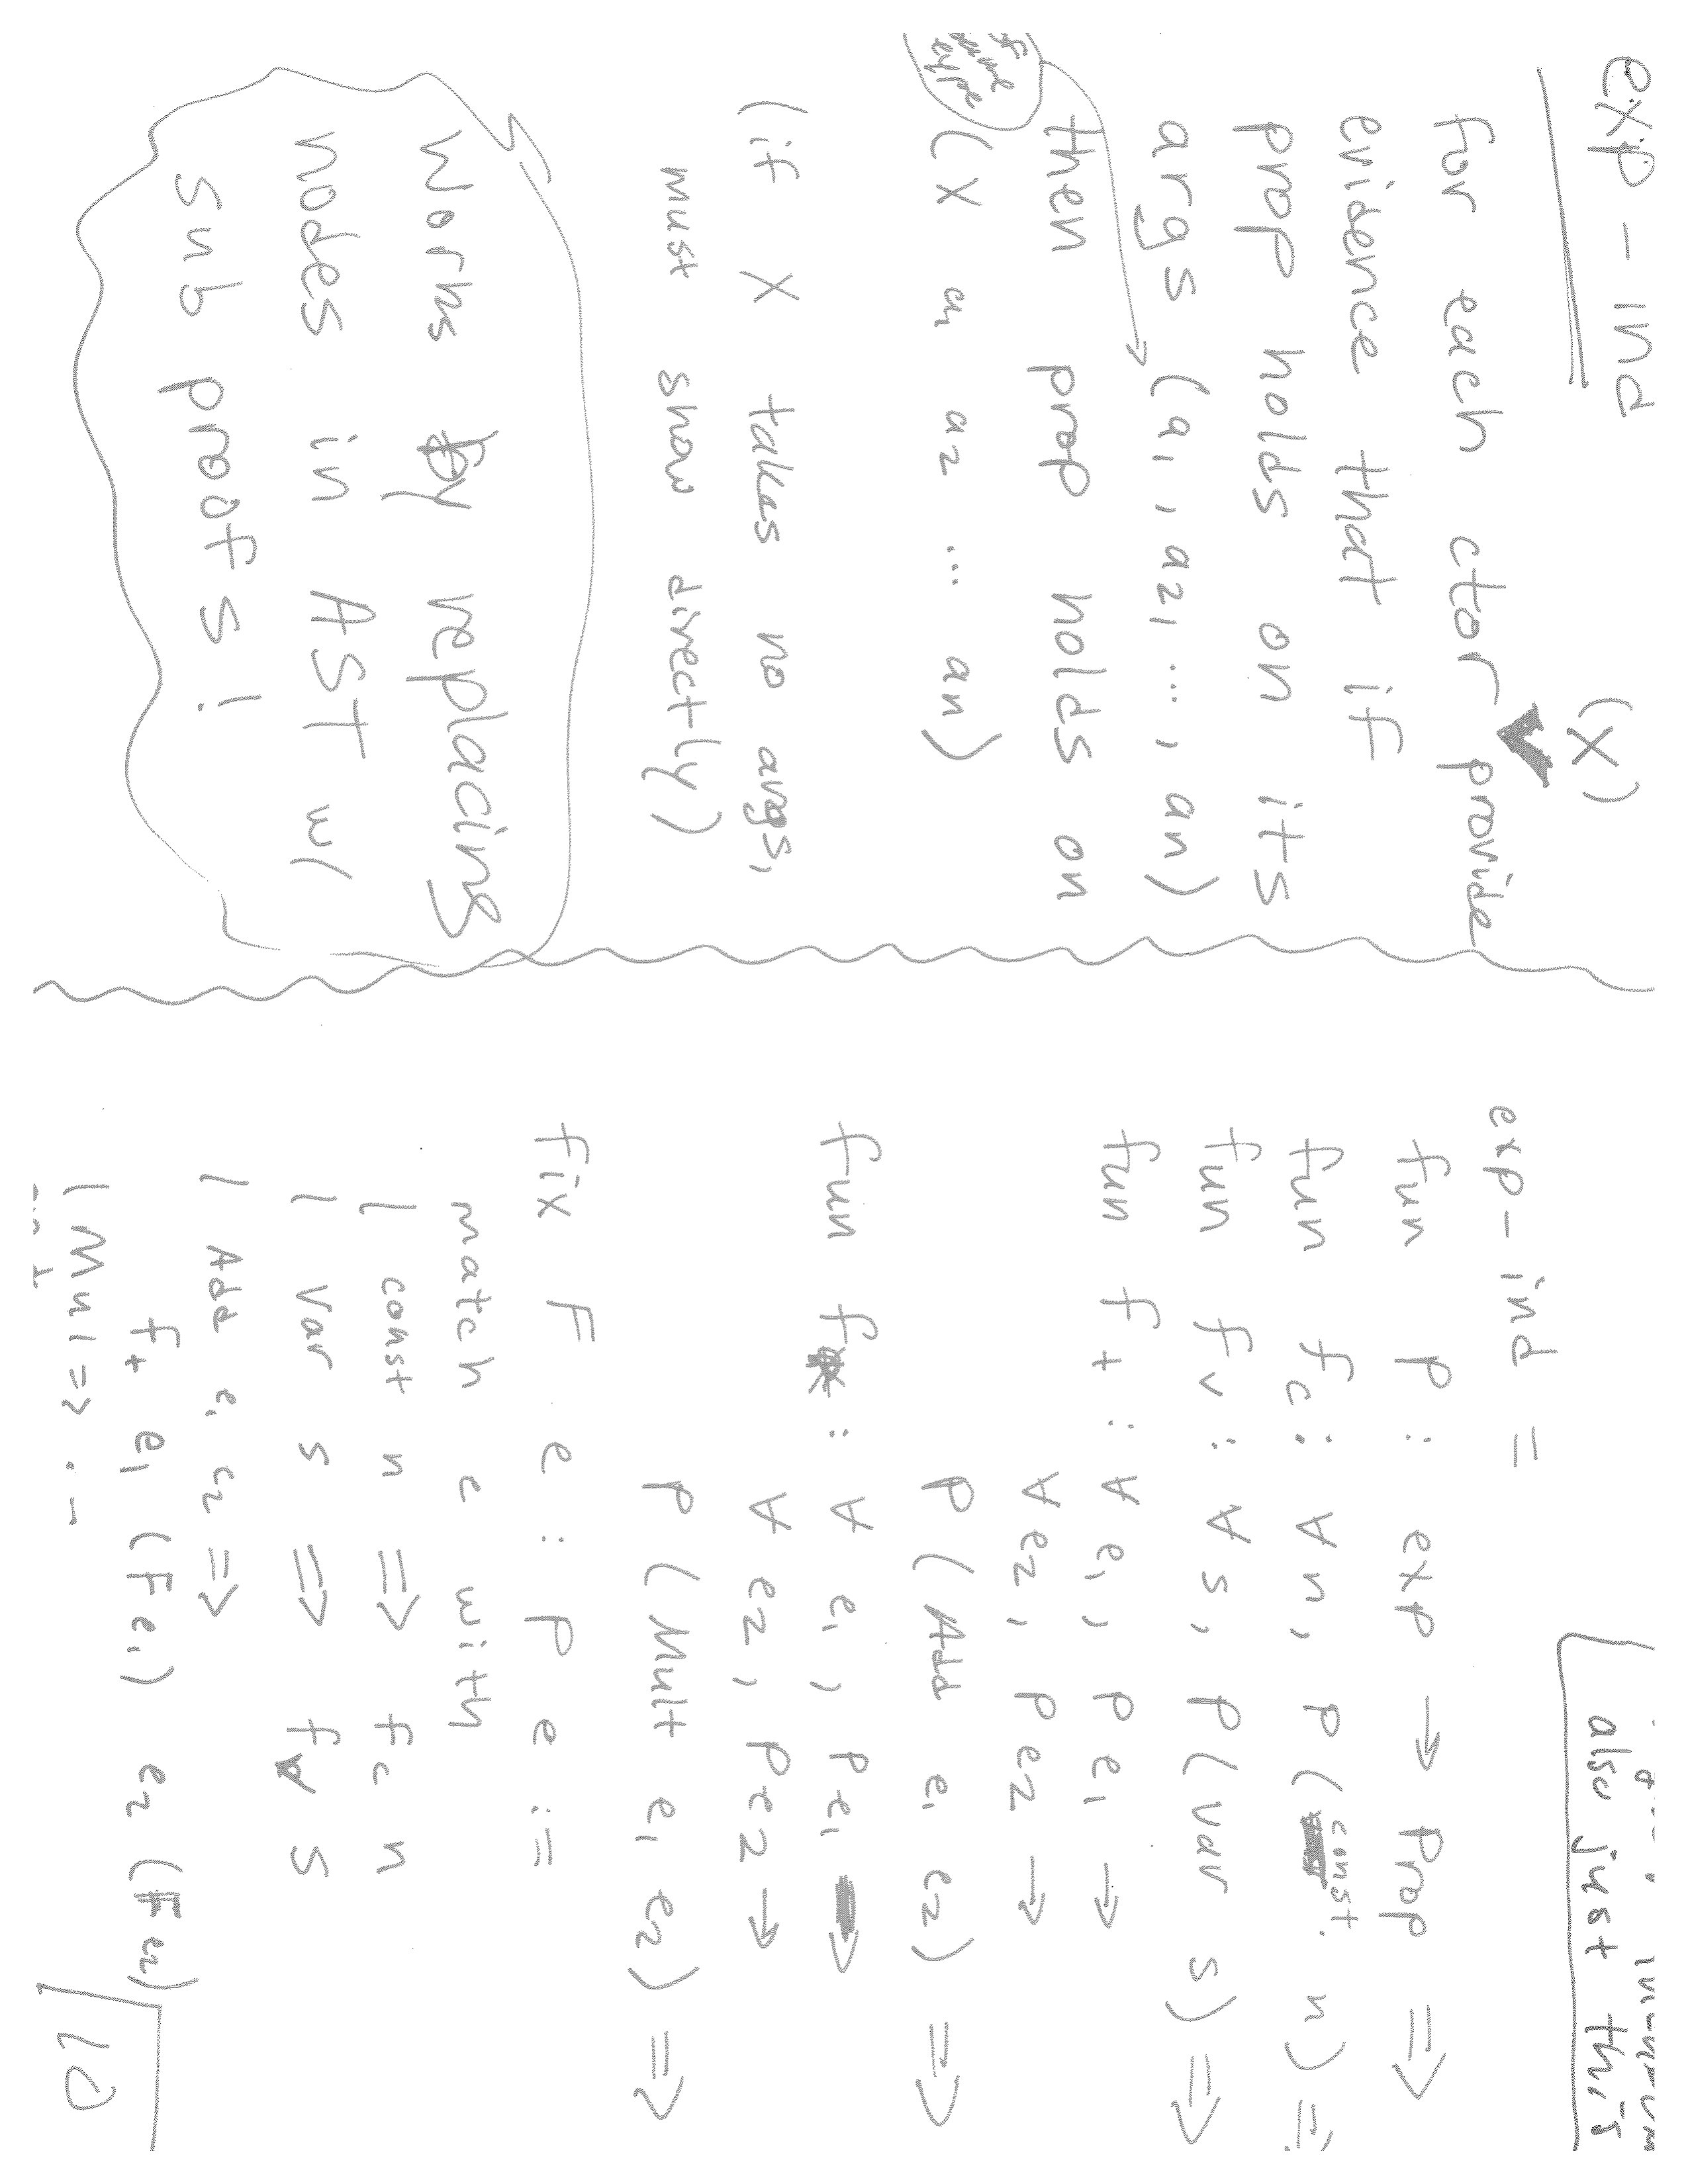 exp-ind
(X)
for each ctor provide
evidence that if
prop holds on its
args (a1, a2, ..., an)
type
then prop holds on
(X a1 a2 ... an)
(if X takes no args,
must show directly)
Works by replacing
nodes in AST w/
sub proofs!
also just this
exp-ind =
fun P : exp → Prop ⇒
fun fc : ∀ n, P (const n) ⇒
fun fv : ∀ s, P (var s) ⇒
fun f+ : ∀ e1, P e1 →
∀ e2, P e2 →
P (Add e1 e2) ⇒
fun f* : ∀ e1, P e1 →
∀ e2, P e2 →
P (Mult e1 e2) ⇒
fix F e : P e :=
match e with
| const n ⇒ fc n
| var s ⇒ fv s
| Add e1 e2 ⇒
f+ e1 (F e1) e2 (F e2)
| Mul => ...
10